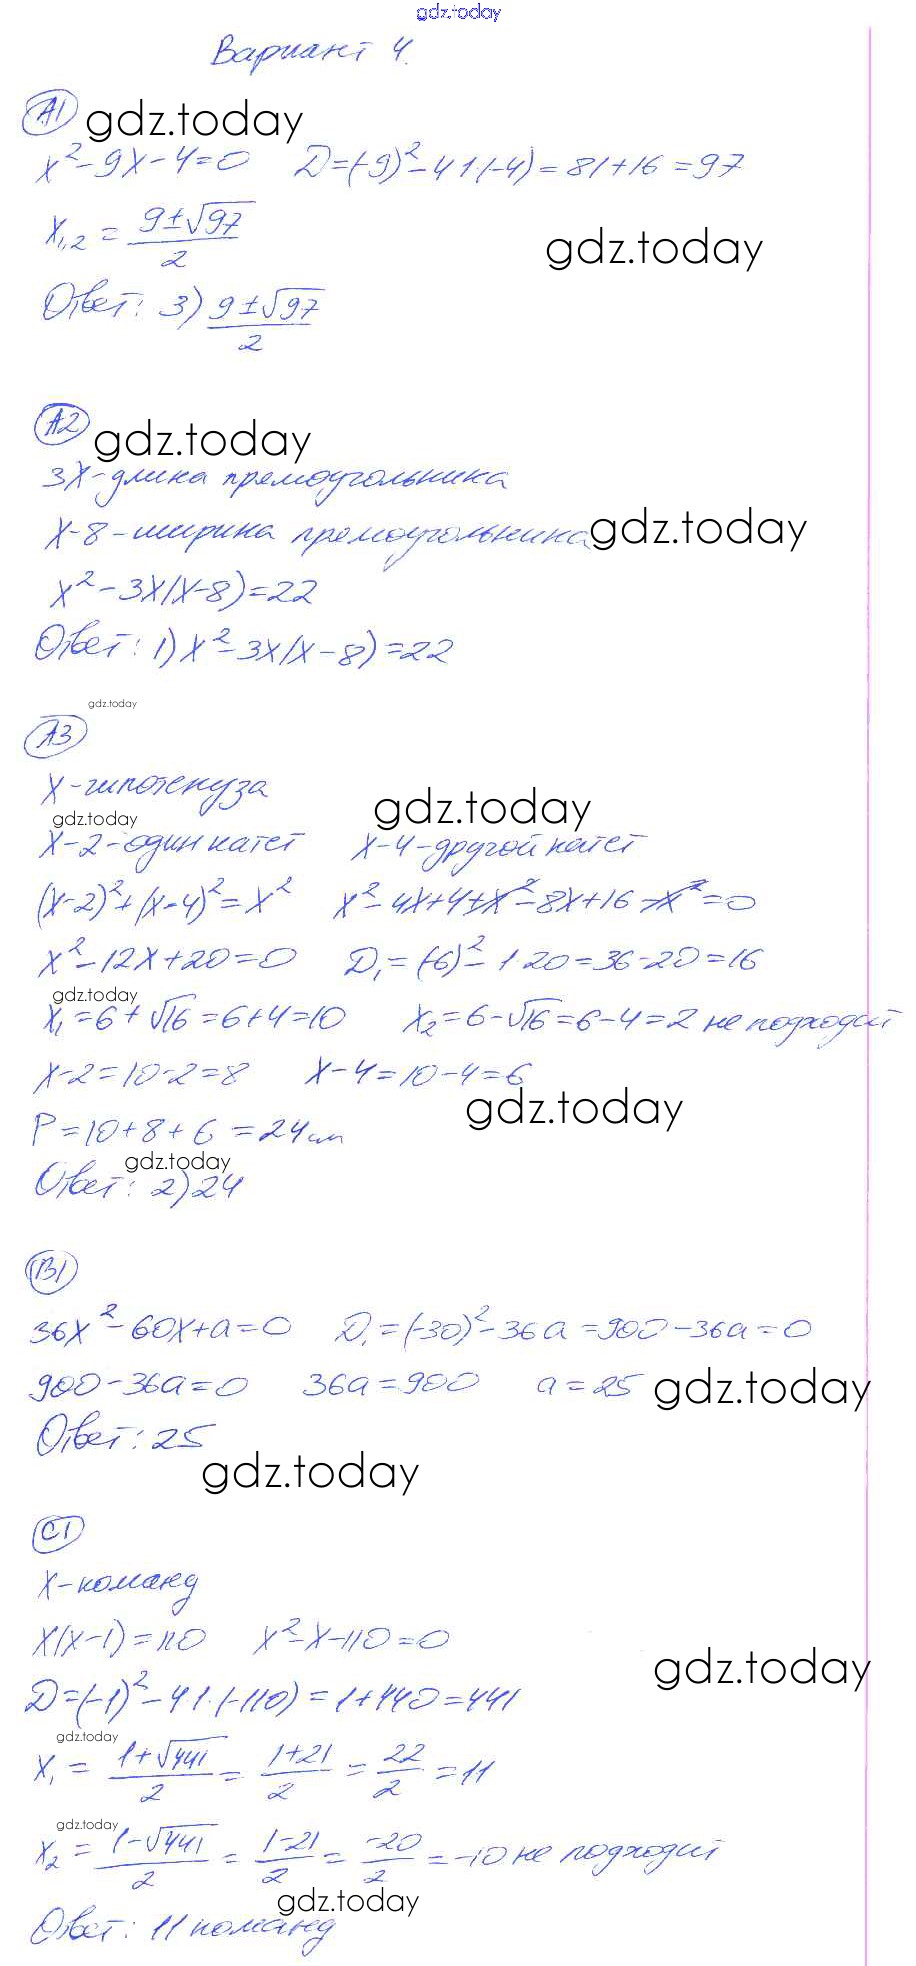 gdz.today
Вариант 4.
А1 gdz.today
x² - 9x - 4 = 0 D = (-9)² - 4·1·(-4) = 81 + 16 = 97
x₁,₂ = (9 ± √97)/2 gdz.today
Ответ: 3) (9 ± √97)/2
А2 gdz.today
3x - длина прямоугольника
x - 8 - ширина прямоугольника gdz.today
x² - 3x(x - 8) = 22
Ответ: 1) x² - 3x(x - 8) = 22
gdz.today
А3
x - гипотенуза gdz.today
gdz.today
x - 2 - один катет x - 4 - другой катет
(x - 2)² + (x - 4)² = x² x² - 4x + 4 + x² - 8x + 16 - x² = 0
x² - 12x + 20 = 0 D₁ = (-6)² - 1·20 = 36 - 20 = 16
gdz.today
x₁ = 6 + √16 = 6 + 4 = 10 x₂ = 6 - √16 = 6 - 4 = 2 не подходит
x - 2 = 10 - 2 = 8 x - 4 = 10 - 4 = 6
gdz.today
P = 10 + 8 + 6 = 24 см
gdz.today
Ответ: 2) 24
В1
36x² - 60x + a = 0 D₁ = (-30)² - 36a = 900 - 36a = 0
900 - 36a = 0 36a = 900 a = 25 gdz.today
Ответ: 25
gdz.today
С1
x - команд
x(x - 1) = 110 x² - x - 110 = 0
gdz.today
D = (-1)² - 4·1·(-110) = 1 + 440 = 441
gdz.today
x₁ = (1 + √441)/2 = (1 + 21)/2 = 22/2 = 11
gdz.today
x₂ = (1 - √441)/2 = (1 - 21)/2 = -20/2 = -10 не подходит
gdz.today
Ответ: 11 команд